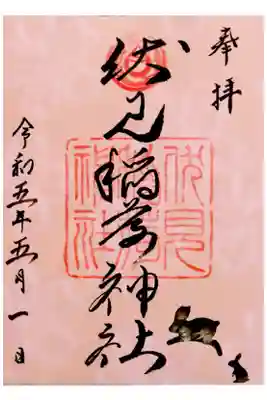 奉拝
伏見稲荷神社
令和五年五月一日
伏見